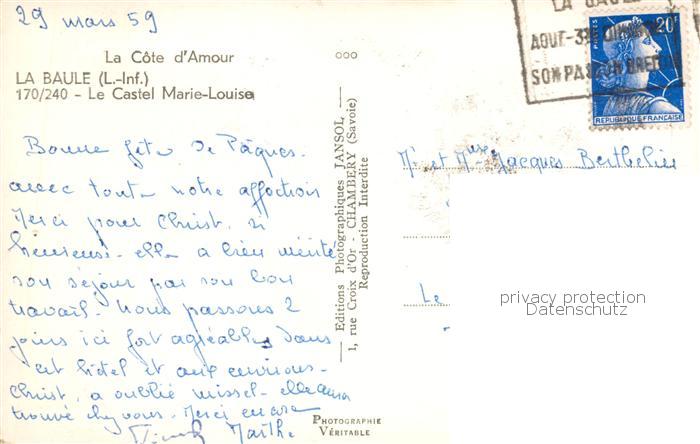 29 mars 59
La Côte d'Amour
LA BAULE (L.-Inf.)
170/240 - Le Castel Marie-Louise
Bonne fête de Pâques.
avec toute notre affection
Merci pour Christ. si
heureuse. elle a bien mérité
son séjour par son bon
travail. Nous passons 2
jours ici fort agréables dans
cet hôtel et aux environs.
Christ. a oublié missel. elle aura
trouvé chez vous. Merci encore
Marthe
ooo
Editions Photographiques JANSOL
1, rue Croix d'Or - CHAMBERY (Savoie)
Reproduction Interdite
PHOTOGRAPHIE
VÉRITABLE
LA BAULE
AOUT-3E DIMANCHE
SON PARDON BRETON
POSTES
20F
REPUBLIQUE FRANÇAISE
Mr et Mme Jacques Berthelier
Le
privacy protection
Datenschutz